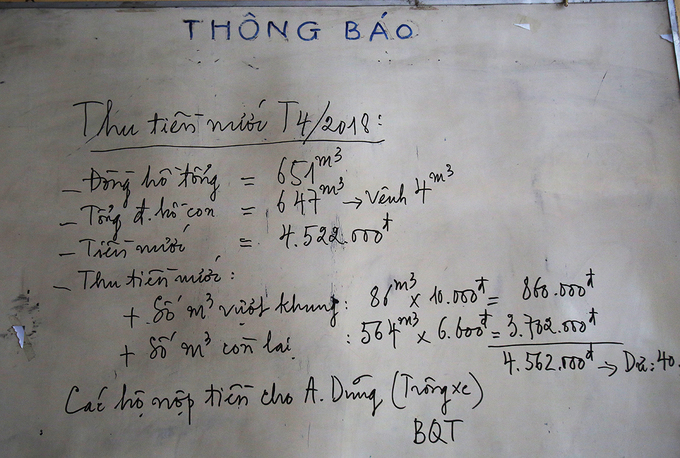 THÔNG BÁO
Thu tiền nước T4/2018:
- Đồng hồ tổng = 651 m³
- Tổng đ. hồ con = 647 m³ → Vênh 4 m³
- Tiền nước = 4.522.000đ
- Thu tiền nước:
+ Số m³ vượt khung: 86 m³ x 10.000đ = 860.000đ
+ Số m³ còn lại : 564 m³ x 6.600đ = 3.702.000đ
4.562.000đ → Dư: 40.
Các hộ nộp tiền cho A. Dũng (Trông xe)
BQT